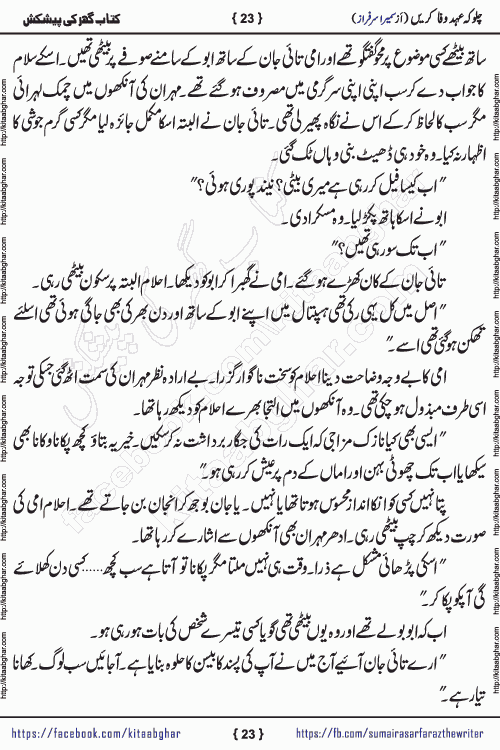 چلو کہ عہدِ وفا کریں (از سمیرا سرفراز)
{ 23 }
کتاب گھر کی پیشکش
ساتھ بیٹھے کسی موضوع پر محو گفتگو تھے اور امی تائی جان کے ساتھ ابو کے سامنے صوفے پر بیٹھی تھیں۔ اسکے سلام
کا جواب دے کر سب اپنی اپنی سرگرمی میں مصروف ہوگئے تھے۔ مہران کی آنکھوں میں چمک لہرائی
مگر سب کا لحاظ کر کے اس نے نگاہ پھیر لی تھی۔ تائی جان نے البتہ اسکا مکمل جائزہ لیا مگر کسی گرم جوشی کا
اظہار نہ کیا۔ وہ خود ہی ڈھیٹ بنی وہاں ٹک گئی۔
"اب کیسا فیل کر رہی ہے میری بیٹی؟ نیند پوری ہوئی؟"
ابو نے اسکا ہاتھ پکڑ لیا۔ وہ مسکرا دی۔
"اب تک سو رہی تھیں؟"
تائی جان کے کان کھڑے ہو گئے۔ امی نے گھبرا کر ابو کو دیکھا۔ احلام البتہ پر سکون بیٹھی رہی۔
"اصل میں کل یہی رکی تھی ہسپتال میں اپنے ابو کے ساتھ اور دن بھر کی بھی جاگی ہوئی تھی اسلئے
تھکن ہوگئی تھی اسے۔"
امی کا بے وجہ وضاحت دینا احلام کو سخت ناگوار گزرا۔ بے ارادہ نظر مہران کی سمت اٹھ گئی جسکی توجہ
اسی طرف مبذول ہو چکی تھی۔ وہ آنکھوں میں التجا بھرے احلام کو دیکھ رہا تھا۔
"ایسی بھی کیا نازک مزاجی کہ ایک رات کی جگار برداشت نہ کرسکیں۔ خیر یہ بتاؤ کچھ پکانا وکانا بھی
سیکھا یا اب تک چھوٹی بہن اور اماں کے دم پر عیش کر رہی ہو۔"
پتا نہیں کسی کو انکا انداز محسوس ہوتا تھا یا نہیں۔ یا جان بوجھ کر انجان بن جاتے تھے۔ احلام امی کی
صورت دیکھ کر چپ بیٹھی رہی۔ ادھر مہران بھی آنکھوں سے اشارے کر رہا تھا۔
"اسکی پڑھائی مشکل ہے ذرا۔ وقت ہی نہیں ملتا مگر پکانا تو آتا ہے سب کچھ..... کسی دن کھلائے
گی آپکو پکا کر۔"
اب کہ ابو بولے تھے اور وہ یوں بیٹھی تھی گویا کسی تیسرے شخص کی بات ہو رہی ہو۔
"ارے تائی جان آئیے آج میں نے آپ کی پسند کا بیسن کا حلوہ بنایا ہے۔ آجائیں سب لوگ۔ کھانا
تیار ہے۔"
https://facebook.com/kitaabghar
{ 23 }
https://fb.com/sumairasarfarazthewriter
http://kitaabghar.com